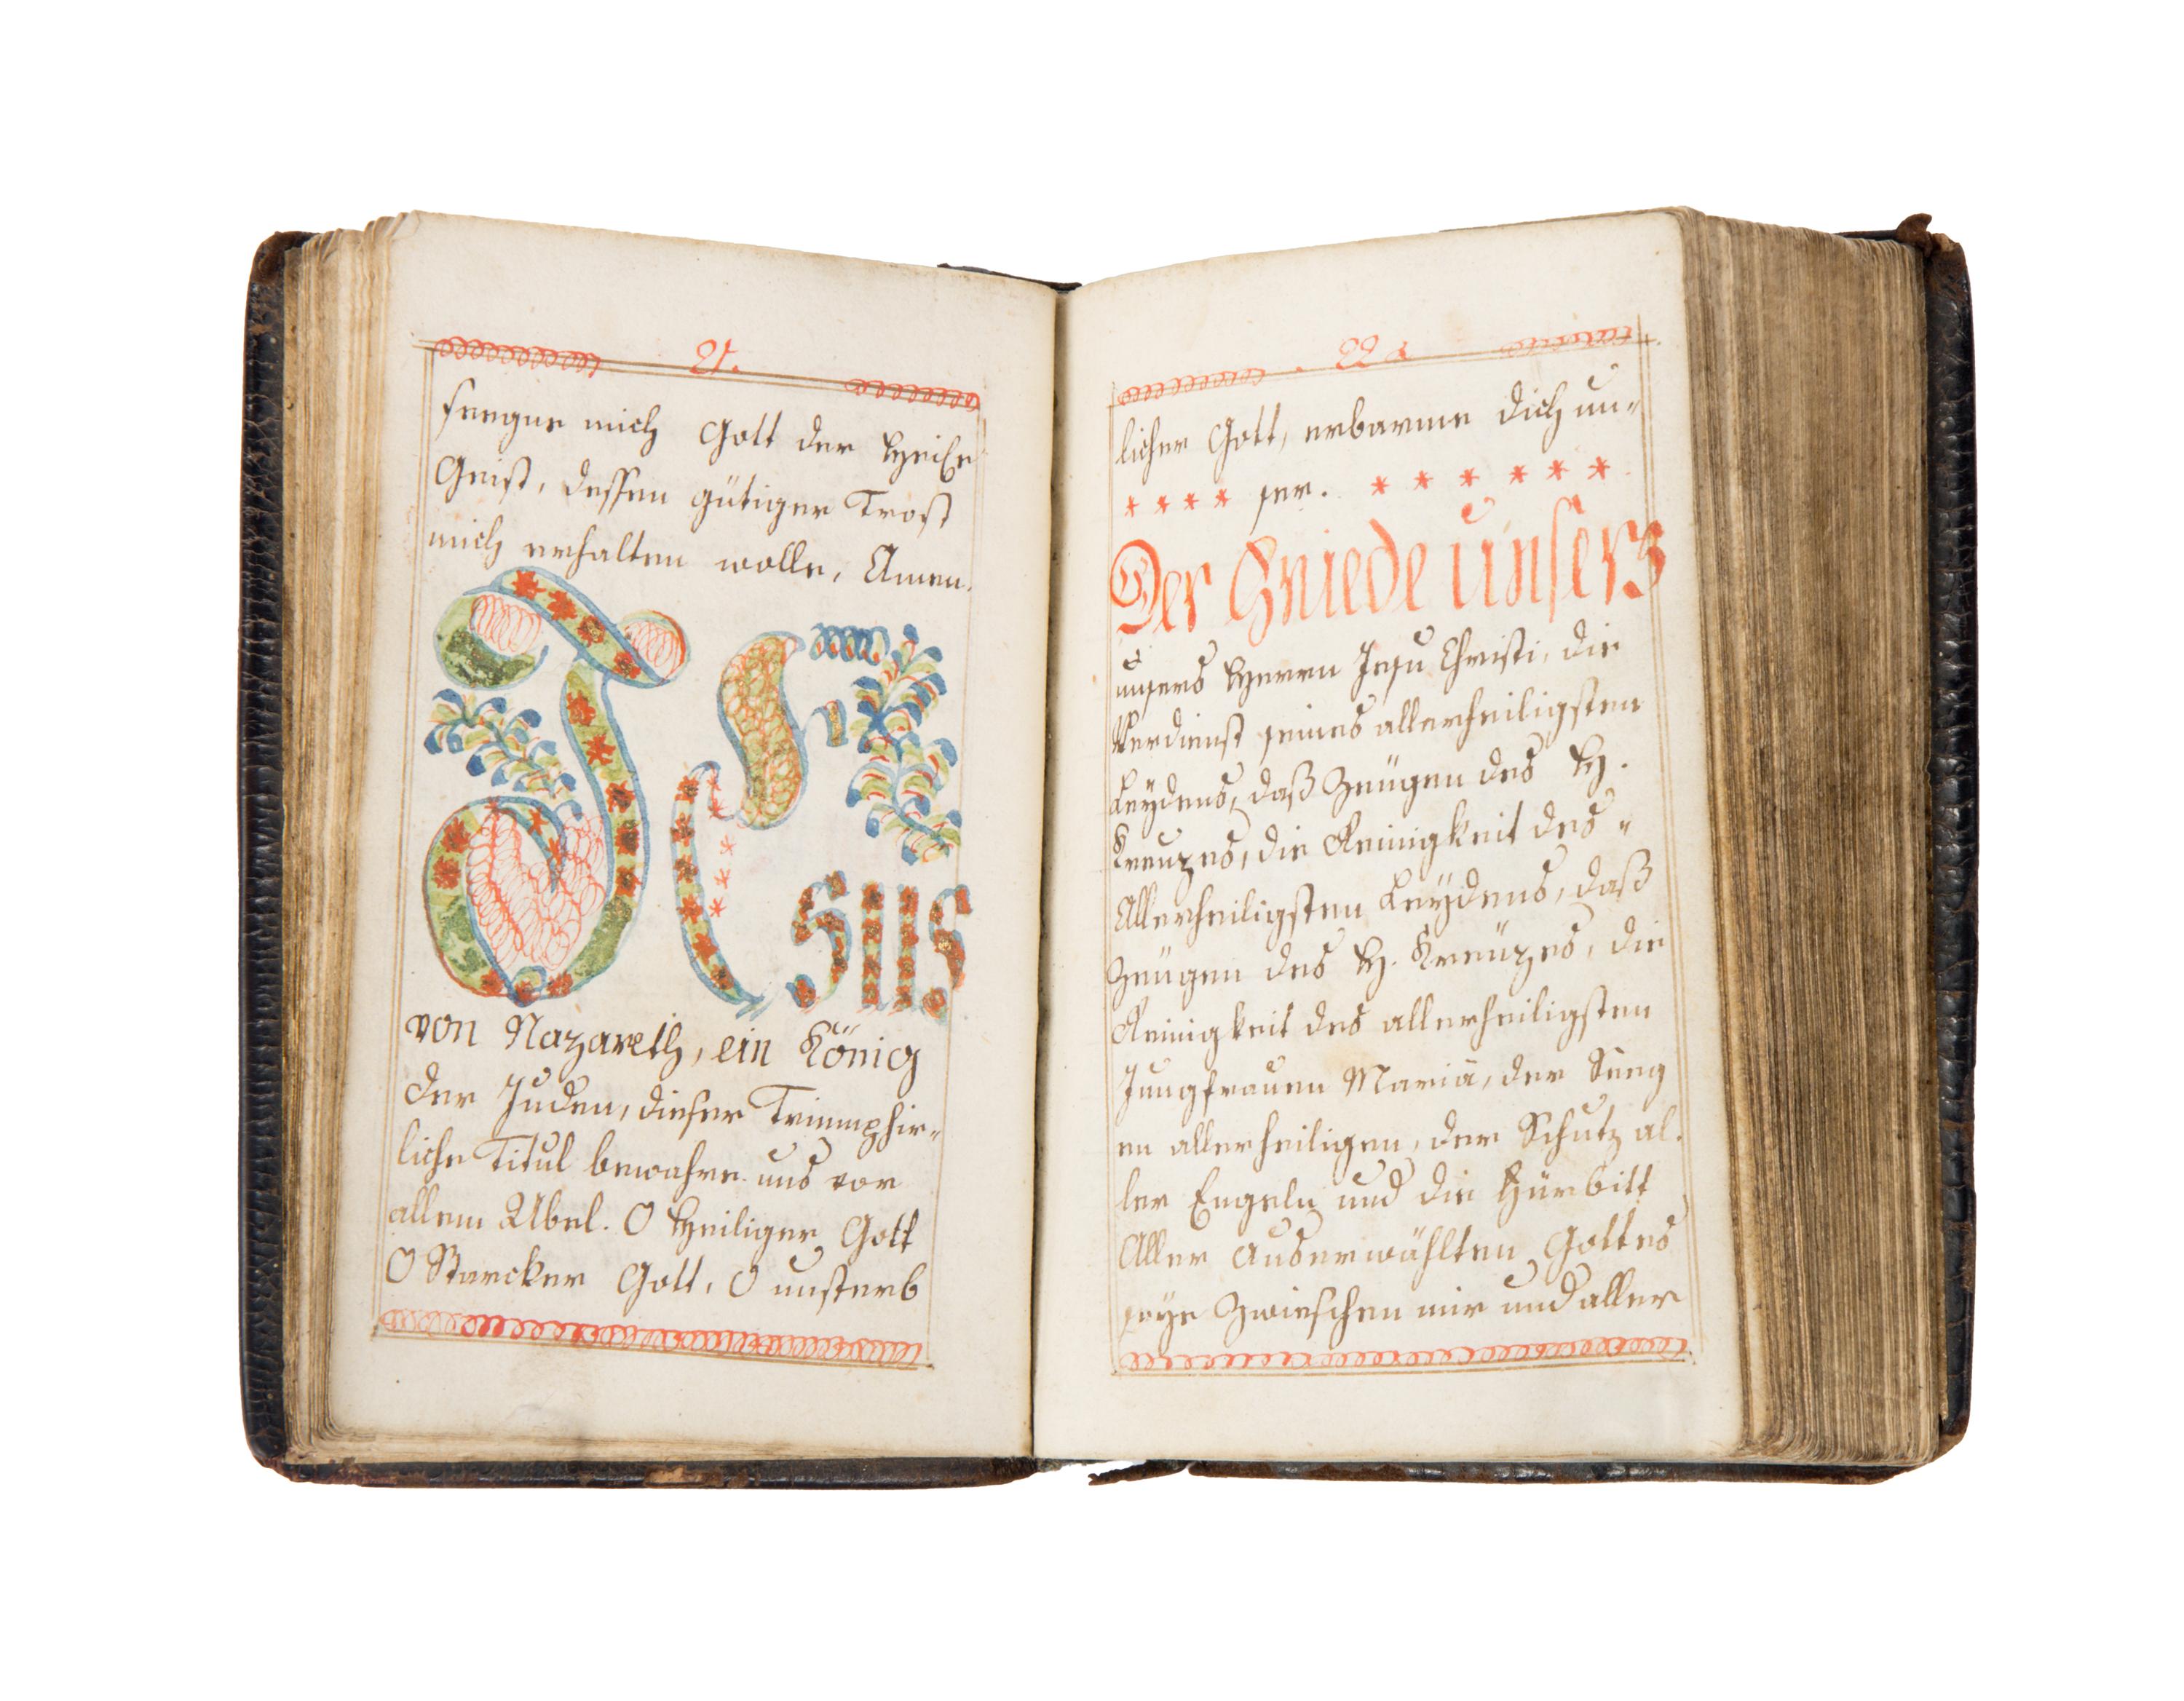 21.
seegne mich Gott der Heilge
Geist, dessen gütiger Trost
mich erhalten wolle, Amen.
JEsus
von Nazareth, ein König
der Juden, dieser Triumphir-
liche Titul bewahre uns vor
allem Ubel. O Heiliger Gott
O Starcker Gott, O unsterb
22
licher Gott, erbarme dich un-
**** ser. ******
Der Friede unsers
unsers Herrn Jesu Christi, die
Verdienst seines allerheiligsten
Leydens, daß Zeügen des H.
Kreuzes, die Reinigkeit des
Allerheiligsten Leydens, daß
Zeügen des H. Kreüzes, die
Reinigkeit des allerheiligsten
Jungfrauen Mariä, der Seeg
en allerheiligen, der Schutz al-
ler Engeln und die Fürbitt
Aller auserwählten Gottes
seye Zwieschen mir und aller